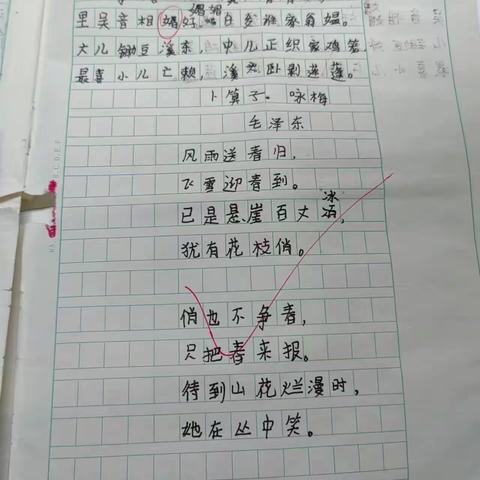 里吴音相媚好,白发谁家翁媪。
大儿锄豆溪东,中儿正织家鸡笼
最喜小儿亡赖,溪头卧剥莲蓬。
卜算子·咏梅
毛泽东
风雨送春归,
飞雪迎春到。
已是悬崖百丈冰,
犹有花枝俏。
俏也不争春,
只把春来报。
待到山花烂漫时,
她在丛中笑。